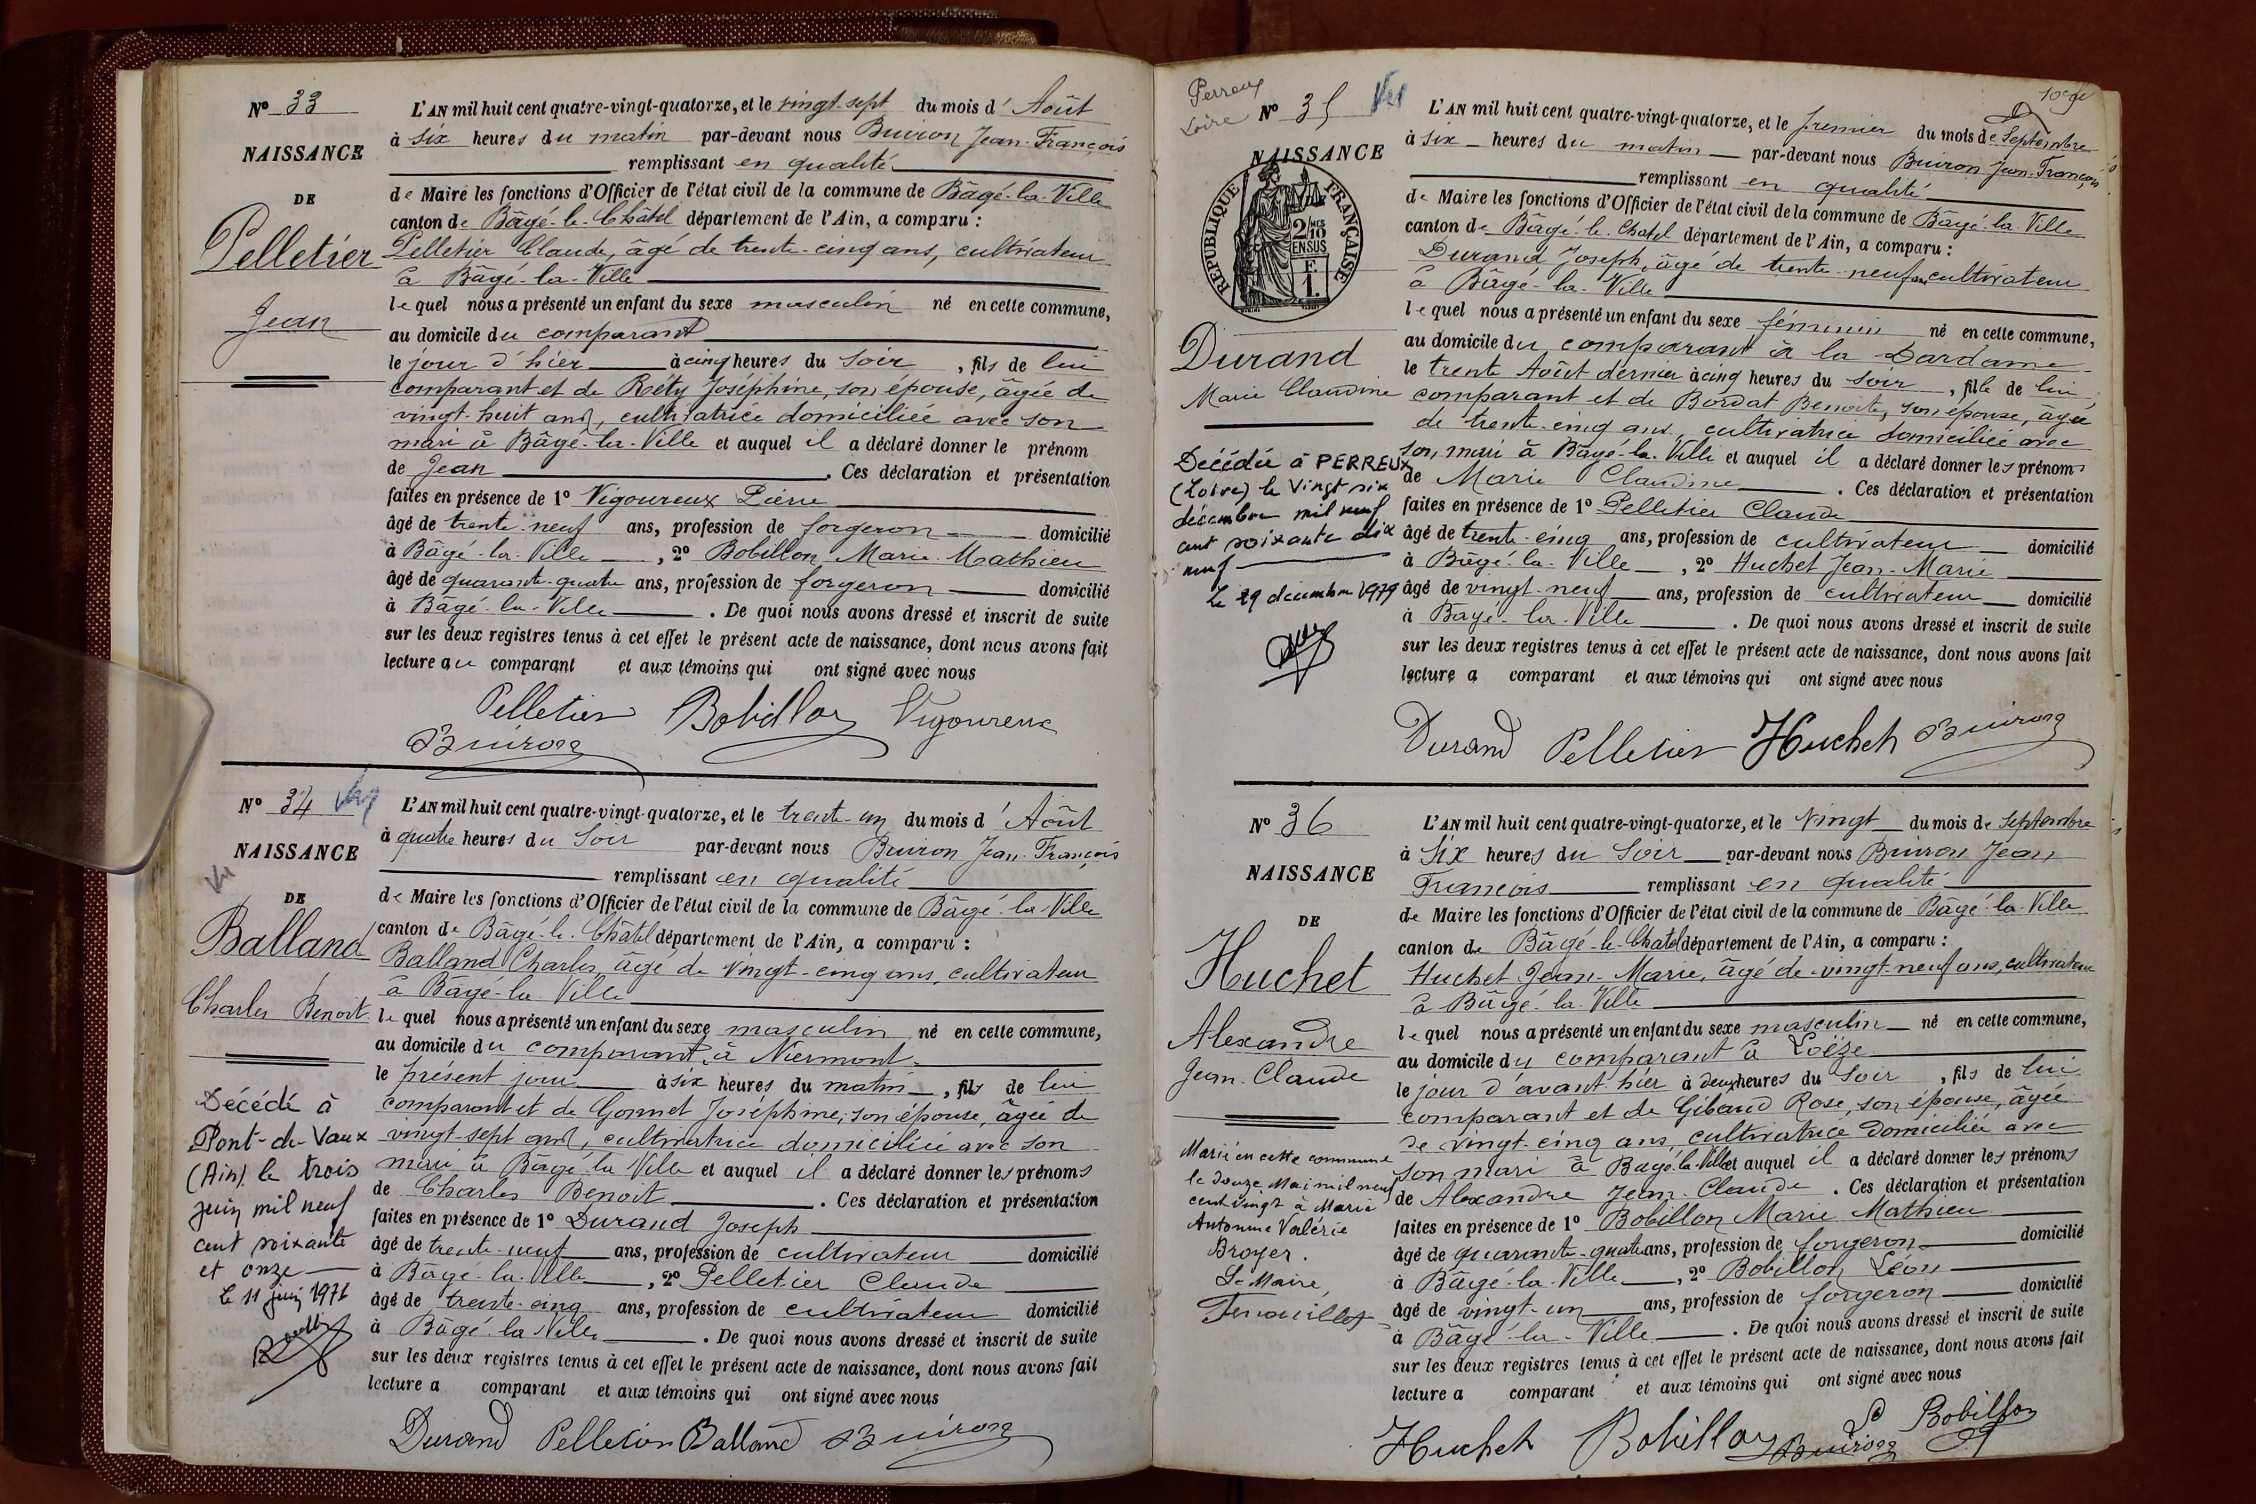 Nº 33
NAISSANCE
DE
Pelletier
Jean
L'AN mil huit cent quatre-vingt-quatorze, et le vingt-sept du mois d'Août
à six heures du matin par-devant nous Buiron Jean-François
remplissant en qualité
de Maire les fonctions d'Officier de l'état civil de la commune de Bâgé-la-Ville
canton de Bâgé-le-Châtel département de l'Ain, a comparu :
Pelletier Claude, âgé de trente-cinq ans, cultivateur
à Bâgé-la-Ville
lequel nous a présenté un enfant du sexe masculin né en cette commune,
au domicile du comparant
le jour d'hier à cinq heures du soir, fils de lui
comparant et de Réty Joséphine, son épouse, âgée de
vingt-huit ans, cultivatrice domiciliée avec son
mari à Bâgé-la-Ville et auquel il a déclaré donner le prénom
de Jean. Ces déclaration et présentation
faites en présence de 1º Vigoureux Pierre
âgé de trente-neuf ans, profession de forgeron domicilié
à Bâgé-la-Ville, 2º Bobillon Marie Mathieu
âgé de quarante-quatre ans, profession de forgeron domicilié
à Bâgé-la-Ville. De quoi nous avons dressé et inscrit de suite
sur les deux registres tenus à cet effet le présent acte de naissance, dont nous avons fait
lecture au comparant et aux témoins qui ont signé avec nous
Pelletier Bobillon Vigoureux
Buiron
Nº 34
NAISSANCE
DE
Balland
Charles Benoit
Décédé à
Pont-de-Vaux
(Ain) le trois
juin mil neuf
cent soixante
et onze
le 11 juin 1971
L'AN mil huit cent quatre-vingt-quatorze, et le trente-un du mois d'Août
à quatre heures du soir par-devant nous Buiron Jean-François
remplissant en qualité
de Maire les fonctions d'Officier de l'état civil de la commune de Bâgé-la-Ville
canton de Bâgé-le-Châtel département de l'Ain, a comparu :
Balland Charles, âgé de vingt-cinq ans, cultivateur
à Bâgé-la-Ville
lequel nous a présenté un enfant du sexe masculin né en cette commune,
au domicile du comparant, à Niermont
le présent jour à six heures du matin, fils de lui
comparant et de Gonnet Joséphine, son épouse, âgée de
vingt-sept ans, cultivatrice domiciliée avec son
mari à Bâgé-la-Ville et auquel il a déclaré donner les prénoms
de Charles Benoit. Ces déclaration et présentation
faites en présence de 1º Durand Joseph
âgé de trente-neuf ans, profession de cultivateur domicilié
à Bâgé-la-Ville, 2º Pelletier Claude
âgé de trente-cinq ans, profession de cultivateur domicilié
à Bâgé-la-Ville. De quoi nous avons dressé et inscrit de suite
sur les deux registres tenus à cet effet le présent acte de naissance, dont nous avons fait
lecture a comparant et aux témoins qui ont signé avec nous
Durand Pelletier Balland Buiron
Perreux
Loire
Nº 35
NAISSANCE
RÉPUBLIQUE FRANÇAISE
2/10 EN SUS
F. 1.
Durand
Marie Claudine
Décédée à PERREUX
(Loire) le vingt six
décembre mil neuf
cent soixante dix
neuf
Le 29 décembre 1979
L'AN mil huit cent quatre-vingt-quatorze, et le premier du mois de Septembre
à six heures du matin par-devant nous Buiron Jean-François
remplissant en qualité
de Maire les fonctions d'Officier de l'état civil de la commune de Bâgé-la-Ville
canton de Bâgé-le-Chatel département de l'Ain, a comparu :
Durand Joseph, âgé de trente-neuf ans cultivateur
à Bâgé-la-Ville
lequel nous a présenté un enfant du sexe féminin né en cette commune,
au domicile du comparant à la Dardaine
le trente Août dernier à cinq heures du soir, fille de lui
comparant et de Bordat Benoite, son épouse, âgée
de trente-cinq ans, cultivatrice domiciliée avec
son mari à Bâgé-la-Ville et auquel il a déclaré donner les prénoms
de Marie Claudine. Ces déclaration et présentation
faites en présence de 1º Pelletier Claude
âgé de trente-cinq ans, profession de cultivateur domicilié
à Bâgé-la-Ville, 2º Huchet Jean-Marie
âgé de vingt-neuf ans, profession de cultivateur domicilié
à Bâgé-la-Ville. De quoi nous avons dressé et inscrit de suite
sur les deux registres tenus à cet effet le présent acte de naissance, dont nous avons fait
lecture a comparant et aux témoins qui ont signé avec nous
Durand Pelletier Huchet Buiron
Nº 36
NAISSANCE
DE
Huchet
Alexandre
Jean-Claude
Marié en cette commune
le douze Mai mil neuf
cent vingt à Marie
Antonine Valérie
Broyer.
Le Maire,
L'AN mil huit cent quatre-vingt-quatorze, et le vingt du mois de Septembre
à six heures du soir par-devant nous Buiron Jean
François remplissant en qualité
de Maire les fonctions d'Officier de l'état civil de la commune de Bâgé-la-Ville
canton de Bâgé-le-Chatel département de l'Ain, a comparu :
Huchet Jean-Marie, âgé de vingt-neuf ans, cultivateur
à Bâgé-la-Ville
lequel nous a présenté un enfant du sexe masculin né en cette commune,
au domicile du comparant à Loëze
le jour d'avant-hier à deux heures du soir, fils de lui
comparant et de Gibaud Rose, son épouse, âgée
de vingt-cinq ans, cultivatrice domiciliée avec
son mari à Bâgé-la-Ville et auquel il a déclaré donner les prénoms
de Alexandre Jean-Claude. Ces déclaration et présentation
faites en présence de 1º Bobillon Marie Mathieu
âgé de quarante-quatre ans, profession de forgeron domicilié
à Bâgé-la-Ville, 2º Bobillon Léon
âgé de vingt-un ans, profession de forgeron domicilié
à Bâgé-la-Ville. De quoi nous avons dressé et inscrit de suite
sur les deux registres tenus à cet effet le présent acte de naissance, dont nous avons fait
lecture a comparant et aux témoins qui ont signé avec nous
Huchet Bobillon Buiron L Bobillon